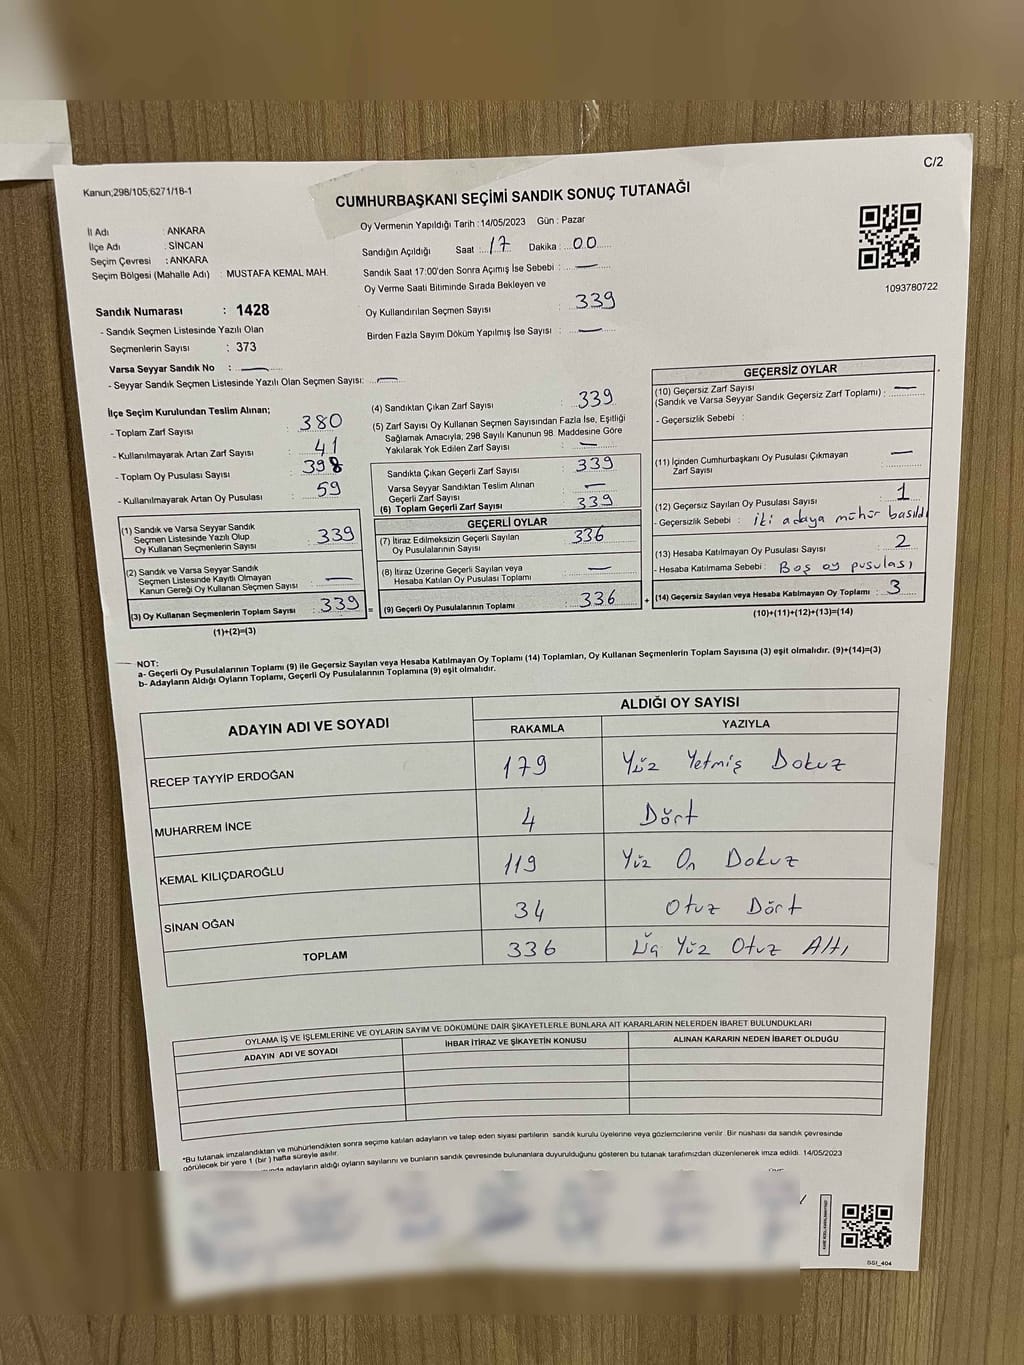 C/2
Kanun;298/105,6271/18-1
CUMHURBAŞKANI SEÇİMİ SANDIK SONUÇ TUTANAĞI
İl Adı : ANKARA
İlçe Adı : SİNCAN
Seçim Çevresi : ANKARA
Seçim Bölgesi (Mahalle Adı) : MUSTAFA KEMAL MAH.
Sandık Numarası : 1428
- Sandık Seçmen Listesinde Yazılı Olan
Seçmenlerin Sayısı : 373
Varsa Seyyar Sandık No : —
- Seyyar Sandık Seçmen Listesinde Yazılı Olan Seçmen Sayısı: —
Oy Vermenin Yapıldığı Tarih : 14/05/2023 Gün : Pazar
Sandığın Açıldığı Saat : 17 Dakika : 00
Sandık Saat 17:00'den Sonra Açımış İse Sebebi : —
Oy Verme Saati Bitiminde Sırada Bekleyen ve
Oy Kullandırılan Seçmen Sayısı : 339
Birden Fazla Sayım Döküm Yapılmış İse Sayısı : —
1093780722
İlçe Seçim Kurulundan Teslim Alınan;
- Toplam Zarf Sayısı : 380
- Kullanılmayarak Artan Zarf Sayısı : 41
- Toplam Oy Pusulası Sayısı : 398
- Kullanılmayarak Artan Oy Pusulası : 59
(1) Sandık ve Varsa Seyyar Sandık
Seçmen Listesinde Yazılı Olup
Oy Kullanan Seçmenlerin Sayısı : 339
(2) Sandık ve Varsa Seyyar Sandık
Seçmen Listesinde Kayıtlı Olmayan
Kanun Gereği Oy Kullanan Seçmen Sayısı : —
(3) Oy Kullanan Seçmenlerin Toplam Sayısı : 339 =
(1)+(2)=(3)
(4) Sandıktan Çıkan Zarf Sayısı : 339
(5) Zarf Sayısı Oy Kullanan Seçmen Sayısından Fazla İse, Eşitliği
Sağlamak Amacıyla, 298 Sayılı Kanunun 98. Maddesine Göre
Yakılarak Yok Edilen Zarf Sayısı : —
Sandıkta Çıkan Geçerli Zarf Sayısı : 339
Varsa Seyyar Sandıktan Teslim Alınan
Geçerli Zarf Sayısı : —
(6) Toplam Geçerli Zarf Sayısı : 339
GEÇERLİ OYLAR
(7) İtiraz Edilmeksizin Geçerli Sayılan
Oy Pusulalarının Sayısı : 336
(8) İtiraz Üzerine Geçerli Sayılan veya
Hesaba Katılan Oy Pusulası Toplamı : —
(9) Geçerli Oy Pusulalarının Toplamı : 336 +
GEÇERSİZ OYLAR
(10) Geçersiz Zarf Sayısı
(Sandık ve Varsa Seyyar Sandık Geçersiz Zarf Toplamı) : —
- Geçersizlik Sebebi :
(11) İçinden Cumhurbaşkanı Oy Pusulası Çıkmayan
Zarf Sayısı : —
(12) Geçersiz Sayılan Oy Pusulası Sayısı : 1
- Geçersizlik Sebebi : iki adaya mühür basıldı
(13) Hesaba Katılmayan Oy Pusulası Sayısı : 2
- Hesaba Katılmama Sebebi : Boş oy pusulası
(14) Geçersiz Sayılan veya Hesaba Katılmayan Oy Toplamı : 3
(10)+(11)+(12)+(13)=(14)
NOT:
a- Geçerli Oy Pusulalarının Toplamı (9) ile Geçersiz Sayılan veya Hesaba Katılmayan Oy Toplamı (14) Toplamları, Oy Kullanan Seçmenlerin Toplam Sayısına (3) eşit olmalıdır. (9)+(14)=(3)
b- Adayların Aldığı Oyların Toplamı, Geçerli Oy Pusulalarının Toplamına (9) eşit olmalıdır.
ADAYIN ADI VE SOYADI ALDIĞI OY SAYISI
RAKAMLA YAZIYLA
RECEP TAYYİP ERDOĞAN 179 Yüz Yetmiş Dokuz
MUHARREM İNCE 4 Dört
KEMAL KILIÇDAROĞLU 119 Yüz On Dokuz
SİNAN OĞAN 34 Otuz Dört
TOPLAM 336 Üç Yüz Otuz Altı
OYLAMA İŞ VE İŞLEMLERİNE VE OYLARIN SAYIM VE DÖKÜMÜNE DAİR ŞİKAYETLERLE BUNLARA AİT KARARLARIN NELERDEN İBARET BULUNDUKLARI
ADAYIN ADI VE SOYADI İHBAR İTİRAZ VE ŞİKAYETİN KONUSU ALINAN KARARIN NEDEN İBARET OLDUĞU
*Bu tutanak imzalandıktan ve mühürlendikten sonra seçime katılan adayların ve talep eden siyasi partilerin sandık kurulu üyelerine veya gözlemcilerine verilir. Bir nüshası da sandık çevresinde
görülecek bir yere 1 (bir) hafta süreyle asılır.
adayların aldığı oyların sayılarını ve bunların sandık çevresinde bulunanlara duyurulduğunu gösteren bu tutanak tarafımızdan düzenlenerek imza edildi. 14/05/2023
SSİ_404